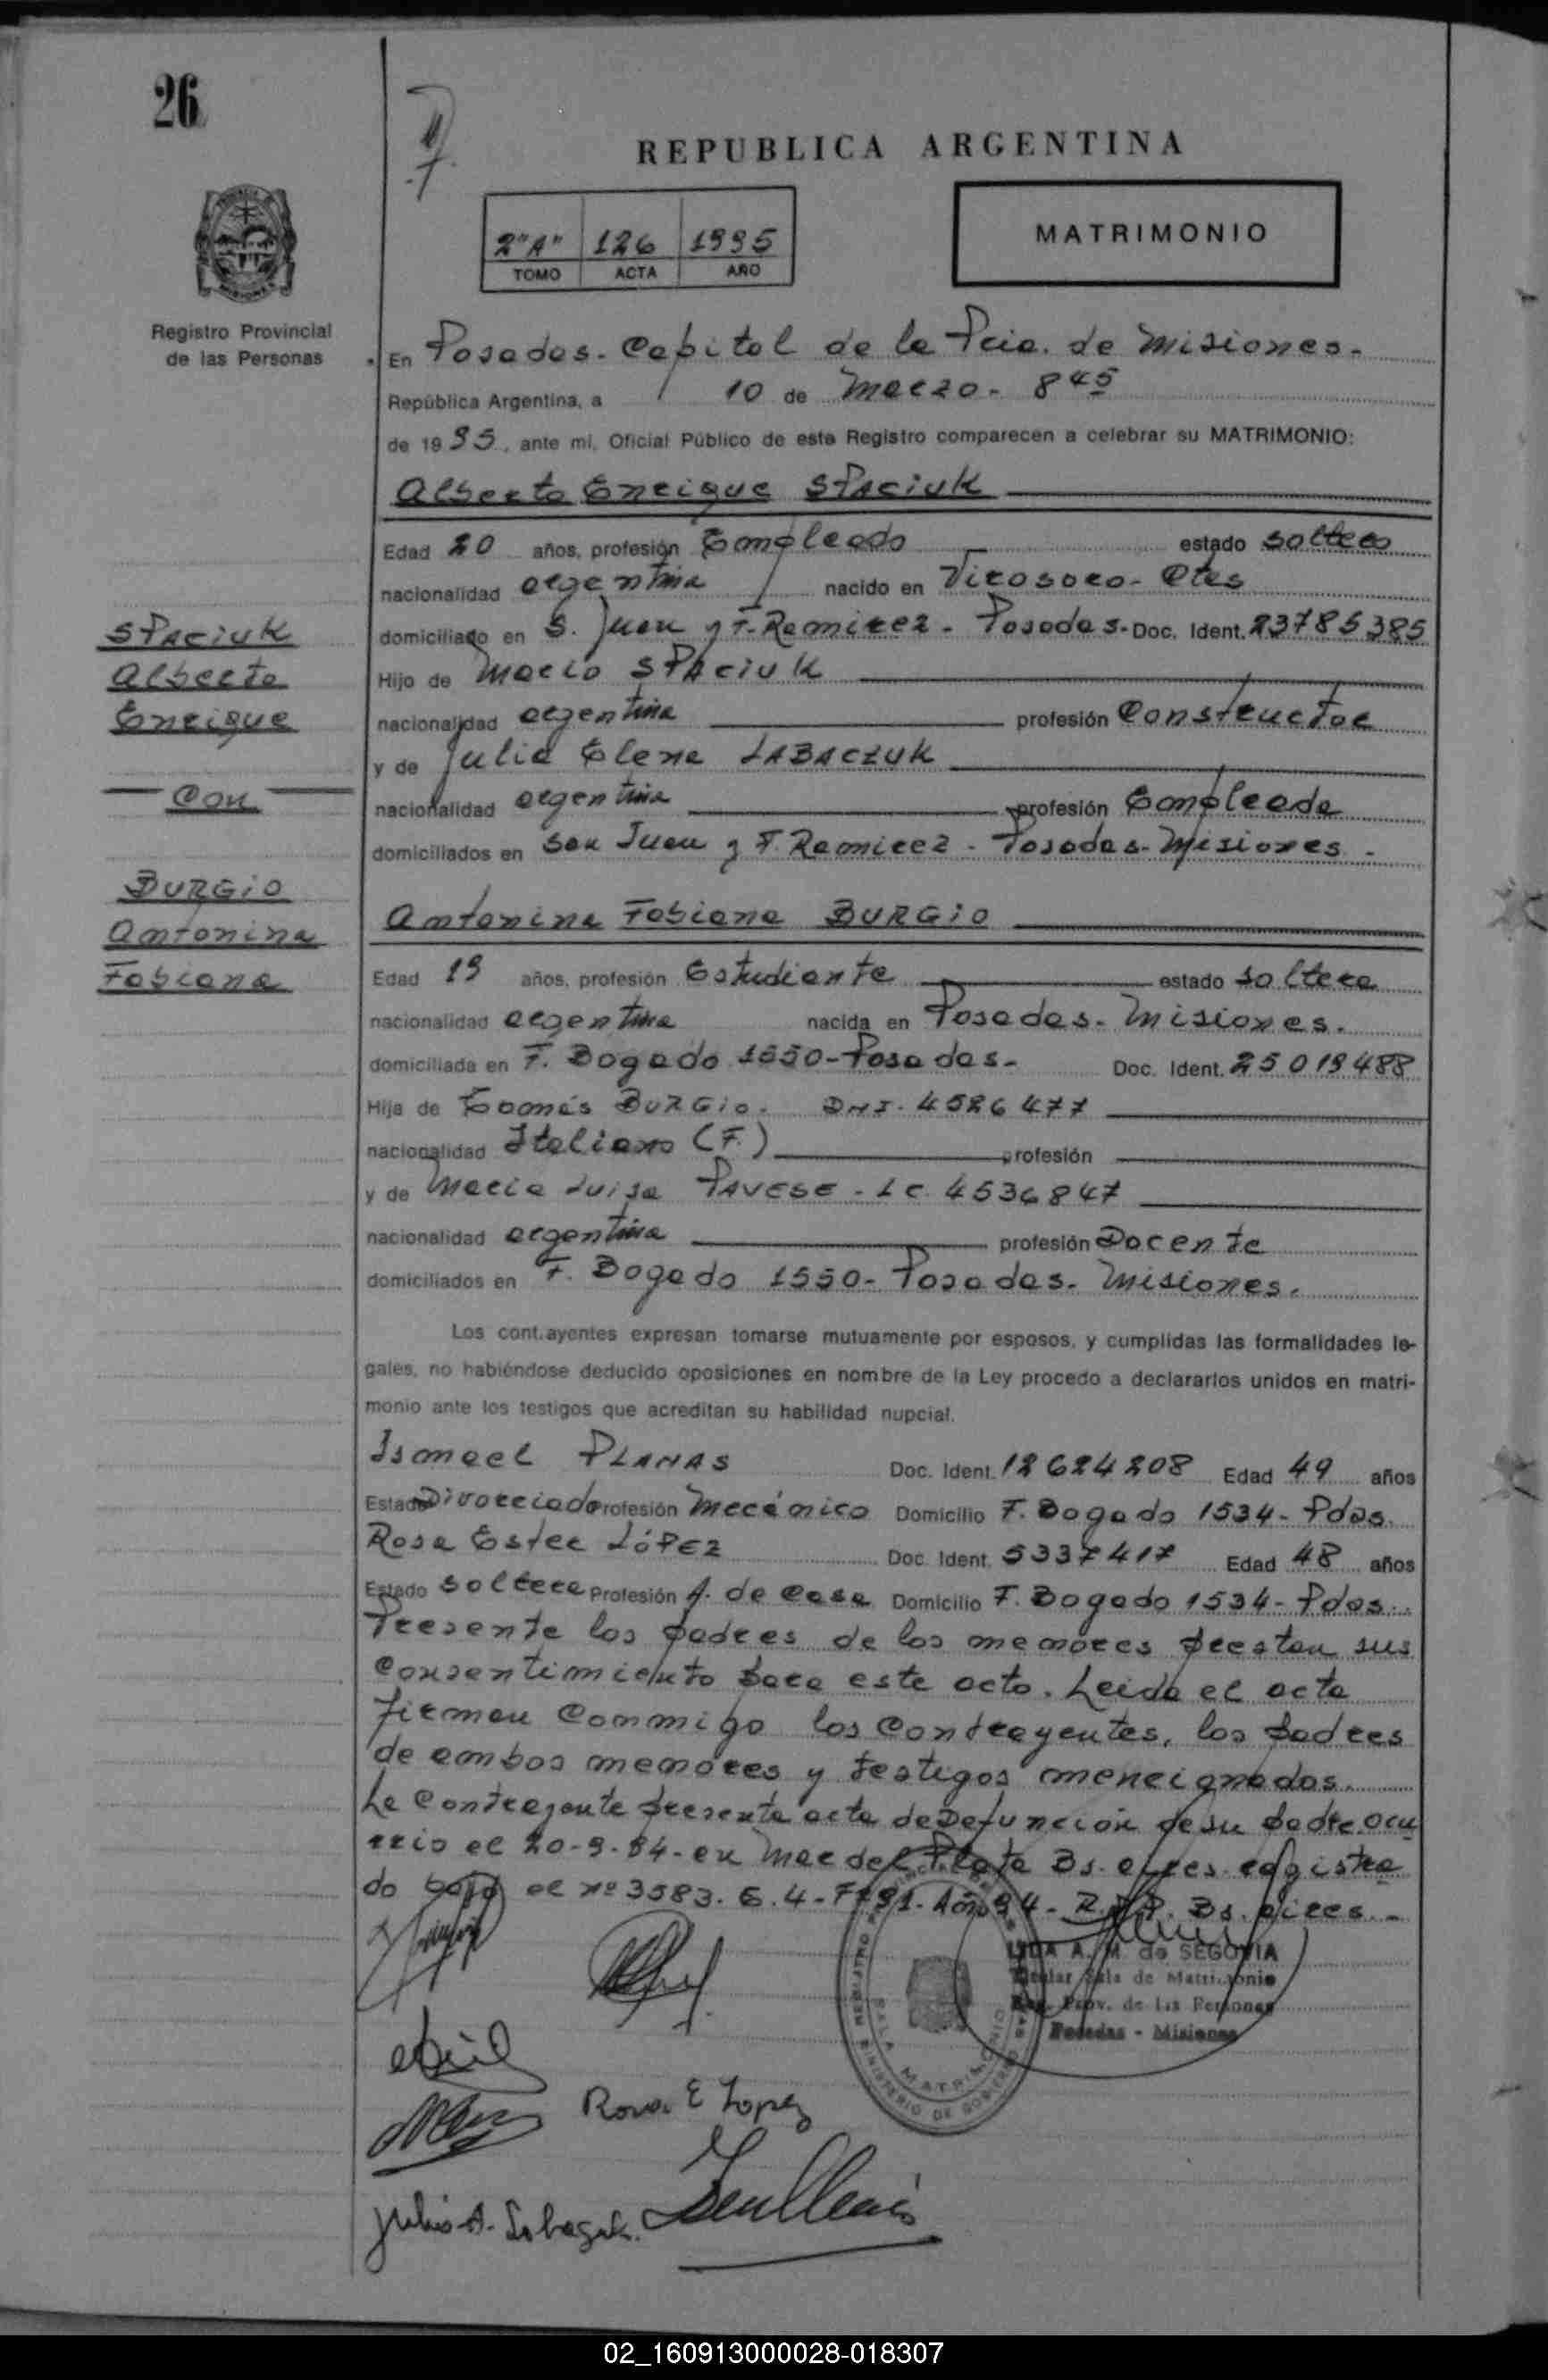 26
REPUBLICA ARGENTINA
2"A" 126 1995
TOMO ACTA AÑO
MATRIMONIO
Registro Provincial
de las Personas
En Posadas. Capital de la Pcia. de Misiones.
República Argentina, a 10 de Marzo. 8 45
de 1995, ante mi, Oficial Público de este Registro comparecen a celebrar su MATRIMONIO:
Alberto Enrique SPACIUK
Edad 20 años, profesión Empleado estado soltero
nacionalidad argentina nacido en Virosoro. Ctes
domiciliado en S. Juan y F. Ramirez - Posadas. Doc. Ident. 23785385
Hijo de Mario SPACIUK
nacionalidad argentina profesión Constructor
y de Julia Elena LABACZUK
nacionalidad argentina profesión Empleada
domiciliados en San Juan y F. Ramirez - Posadas. Misiones.
SPACIUK
Alberto
Enrique
Con
BURGIO
Antonina
Fabiana
Antonina Fabiana BURGIO
Edad 19 años, profesión Estudiante estado soltera
nacionalidad argentina nacida en Posadas. Misiones.
domiciliada en F. Bogado 1550 - Posadas. Doc. Ident. 25019488
Hija de BURGIO. DNI. 4526477
nacionalidad Italiano (F.) profesión
y de Maria Luisa PAVESE - LC. 4536847
nacionalidad argentina profesión Docente
domiciliados en F. Bogado 1550 - Posadas. Misiones.
Los contrayentes expresan tomarse mutuamente por esposos, y cumplidas las formalidades le-
gales, no habiéndose deducido oposiciones en nombre de la Ley procedo a declararlos unidos en matri-
monio ante los testigos que acreditan su habilidad nupcial.
Ismael PLANAS Doc. Ident. 12624208 Edad 49 años
Estado Divorciado Profesión Mecánico Domicilio F. Bogado 1534 - Pdas.
Rosa Ester LÓPEZ Doc. Ident. 5337417 Edad 48 años
Estado soltera Profesión A. de Casa Domicilio F. Bogado 1534 - Pdas.
Presente los padres de los menores prestan sus
consentimiento para este acto. Leida el acta
firman conmigo los contrayentes, los padres
de ambos menores y testigos mencionados.
La contrayente presenta acta de Defunción de su padre ocu
rrio el 20-9-94 - en Mar del Plata Bs. aires registra
do bajo el nº 3583. Año 94 - Bs. aires.
LYDA A. M. de SEGOVIA
Titular Sala de Matrimonio
Reg. Prov. de las Personas
Posadas - Misiones
REGISTRO PROVINCIAL DE LAS
SALA MATRIMONIO
MINISTERIO DE GOBIERNO
Rosa E Lopez
02_160913000028-018307